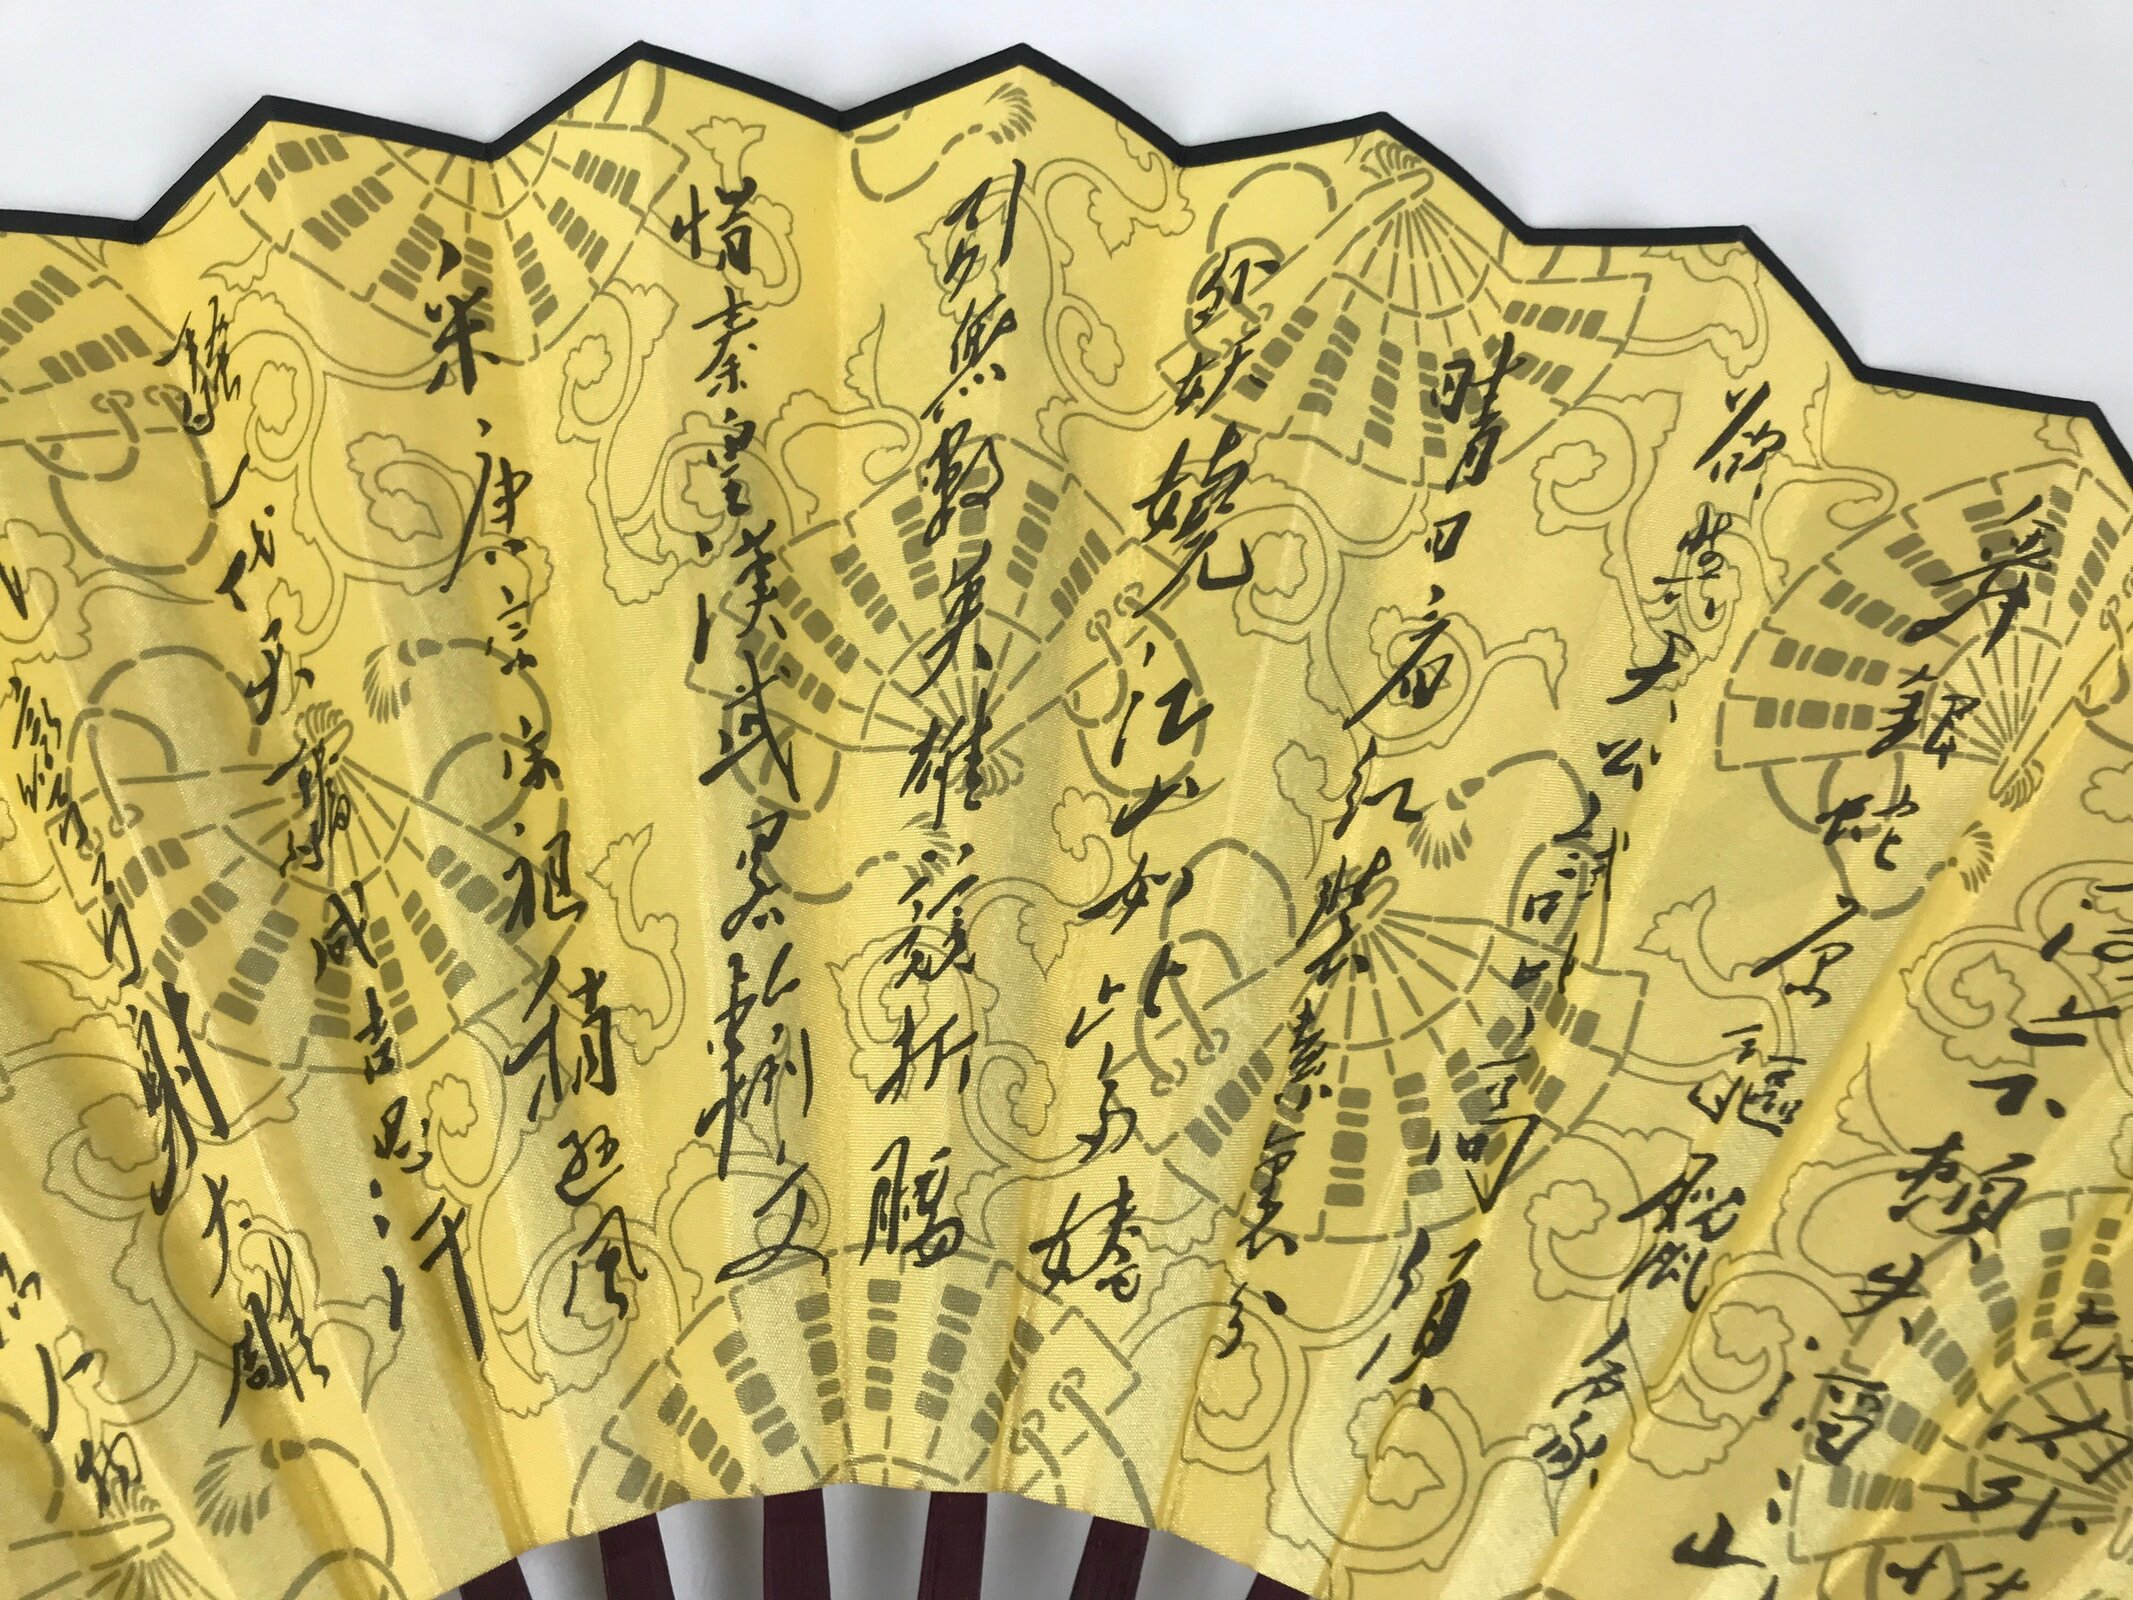 上下頓失滔山
舞銀蛇原馳蠟象
欲與天公試比高須
晴日看紅裝素裹分
外妖嬈江山如此多嬌
引無數英雄競折腰
惜秦皇漢武略輸文
采唐宗宋祖稍遜風
騷一代天驕成吉思汗
識彎弓射大雕
人物